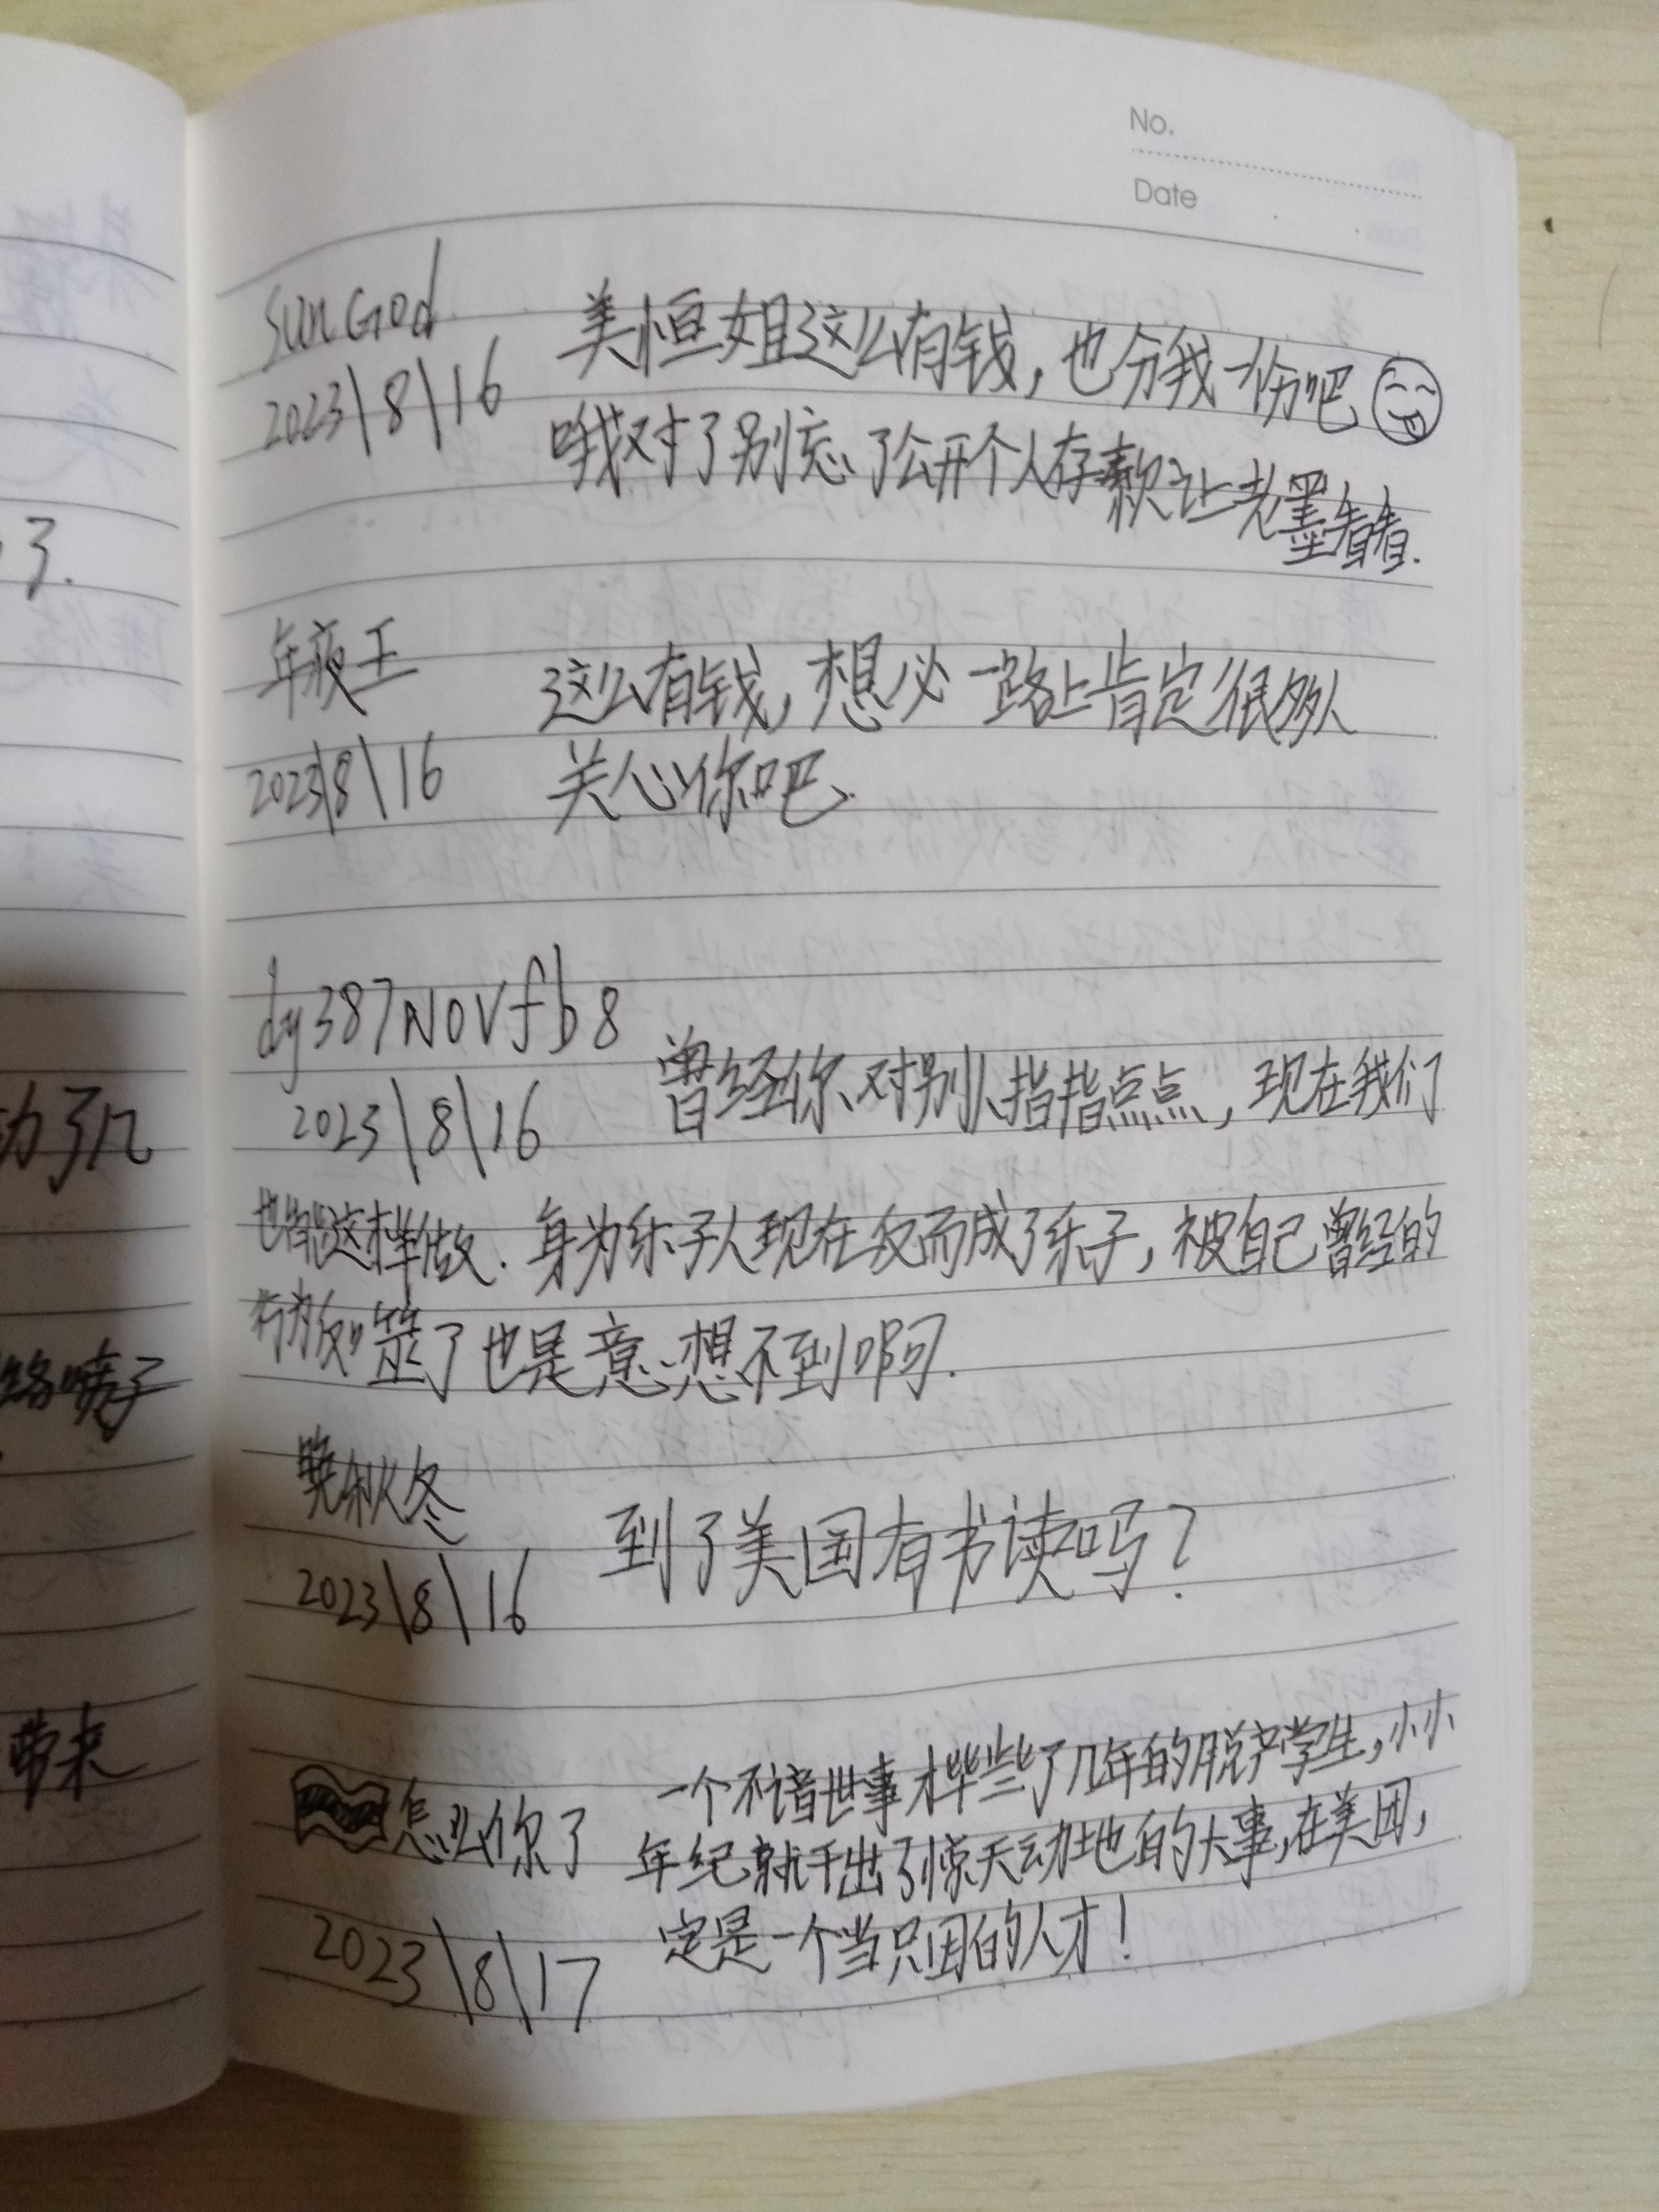 No.
Date
Sun God
2023\8\16
美恒姐这么有钱，也分我一份吧
哦对了别忘了公开个人存款让老墨看看.
年夜王
2023\8\16
这么有钱，想必一路上肯定很多人
关心你吧.
dy387NOVfb8
2023\8\16
曾经你对别人指指点点，现在我们
也能这样做.身为乐子人现在反而成了乐子，被自己曾经的
行为反噬了也是意想不到啊.
晚秋冬
2023\8\16
到了美国有书读吗？
怎么你了
2023\8\17
一个不谙世事才毕业了几年的脱产学生，小小
年纪就干出了惊天动地的大事，在美团，
定是一个当只因的人才！
了.
动了几
络喷子
带来